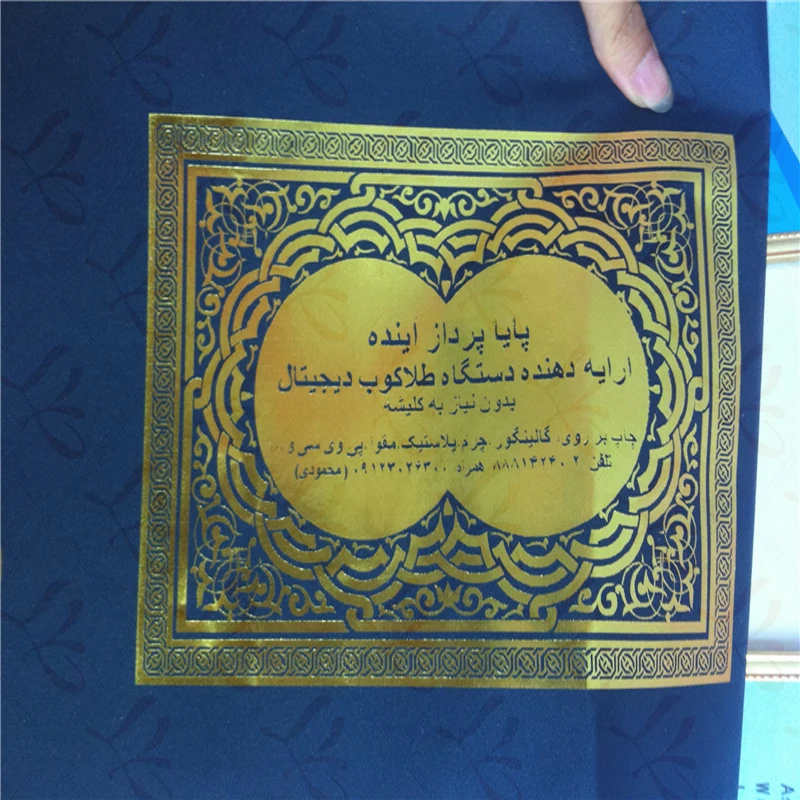 پایا پرداز اینده
ارایه دهنده دستگاه طلاکوب دیجیتال
بدون نیاز به کلیشه
چاپ بر روی: گالینگور، چرم، پلاستیک، مقوا، پی وی سی و ...
تلفن ۸۸۸۱۴۲۴۰۲ همراه ۰۹۱۲۳۰۲۶۳۰۰ (محمودی)